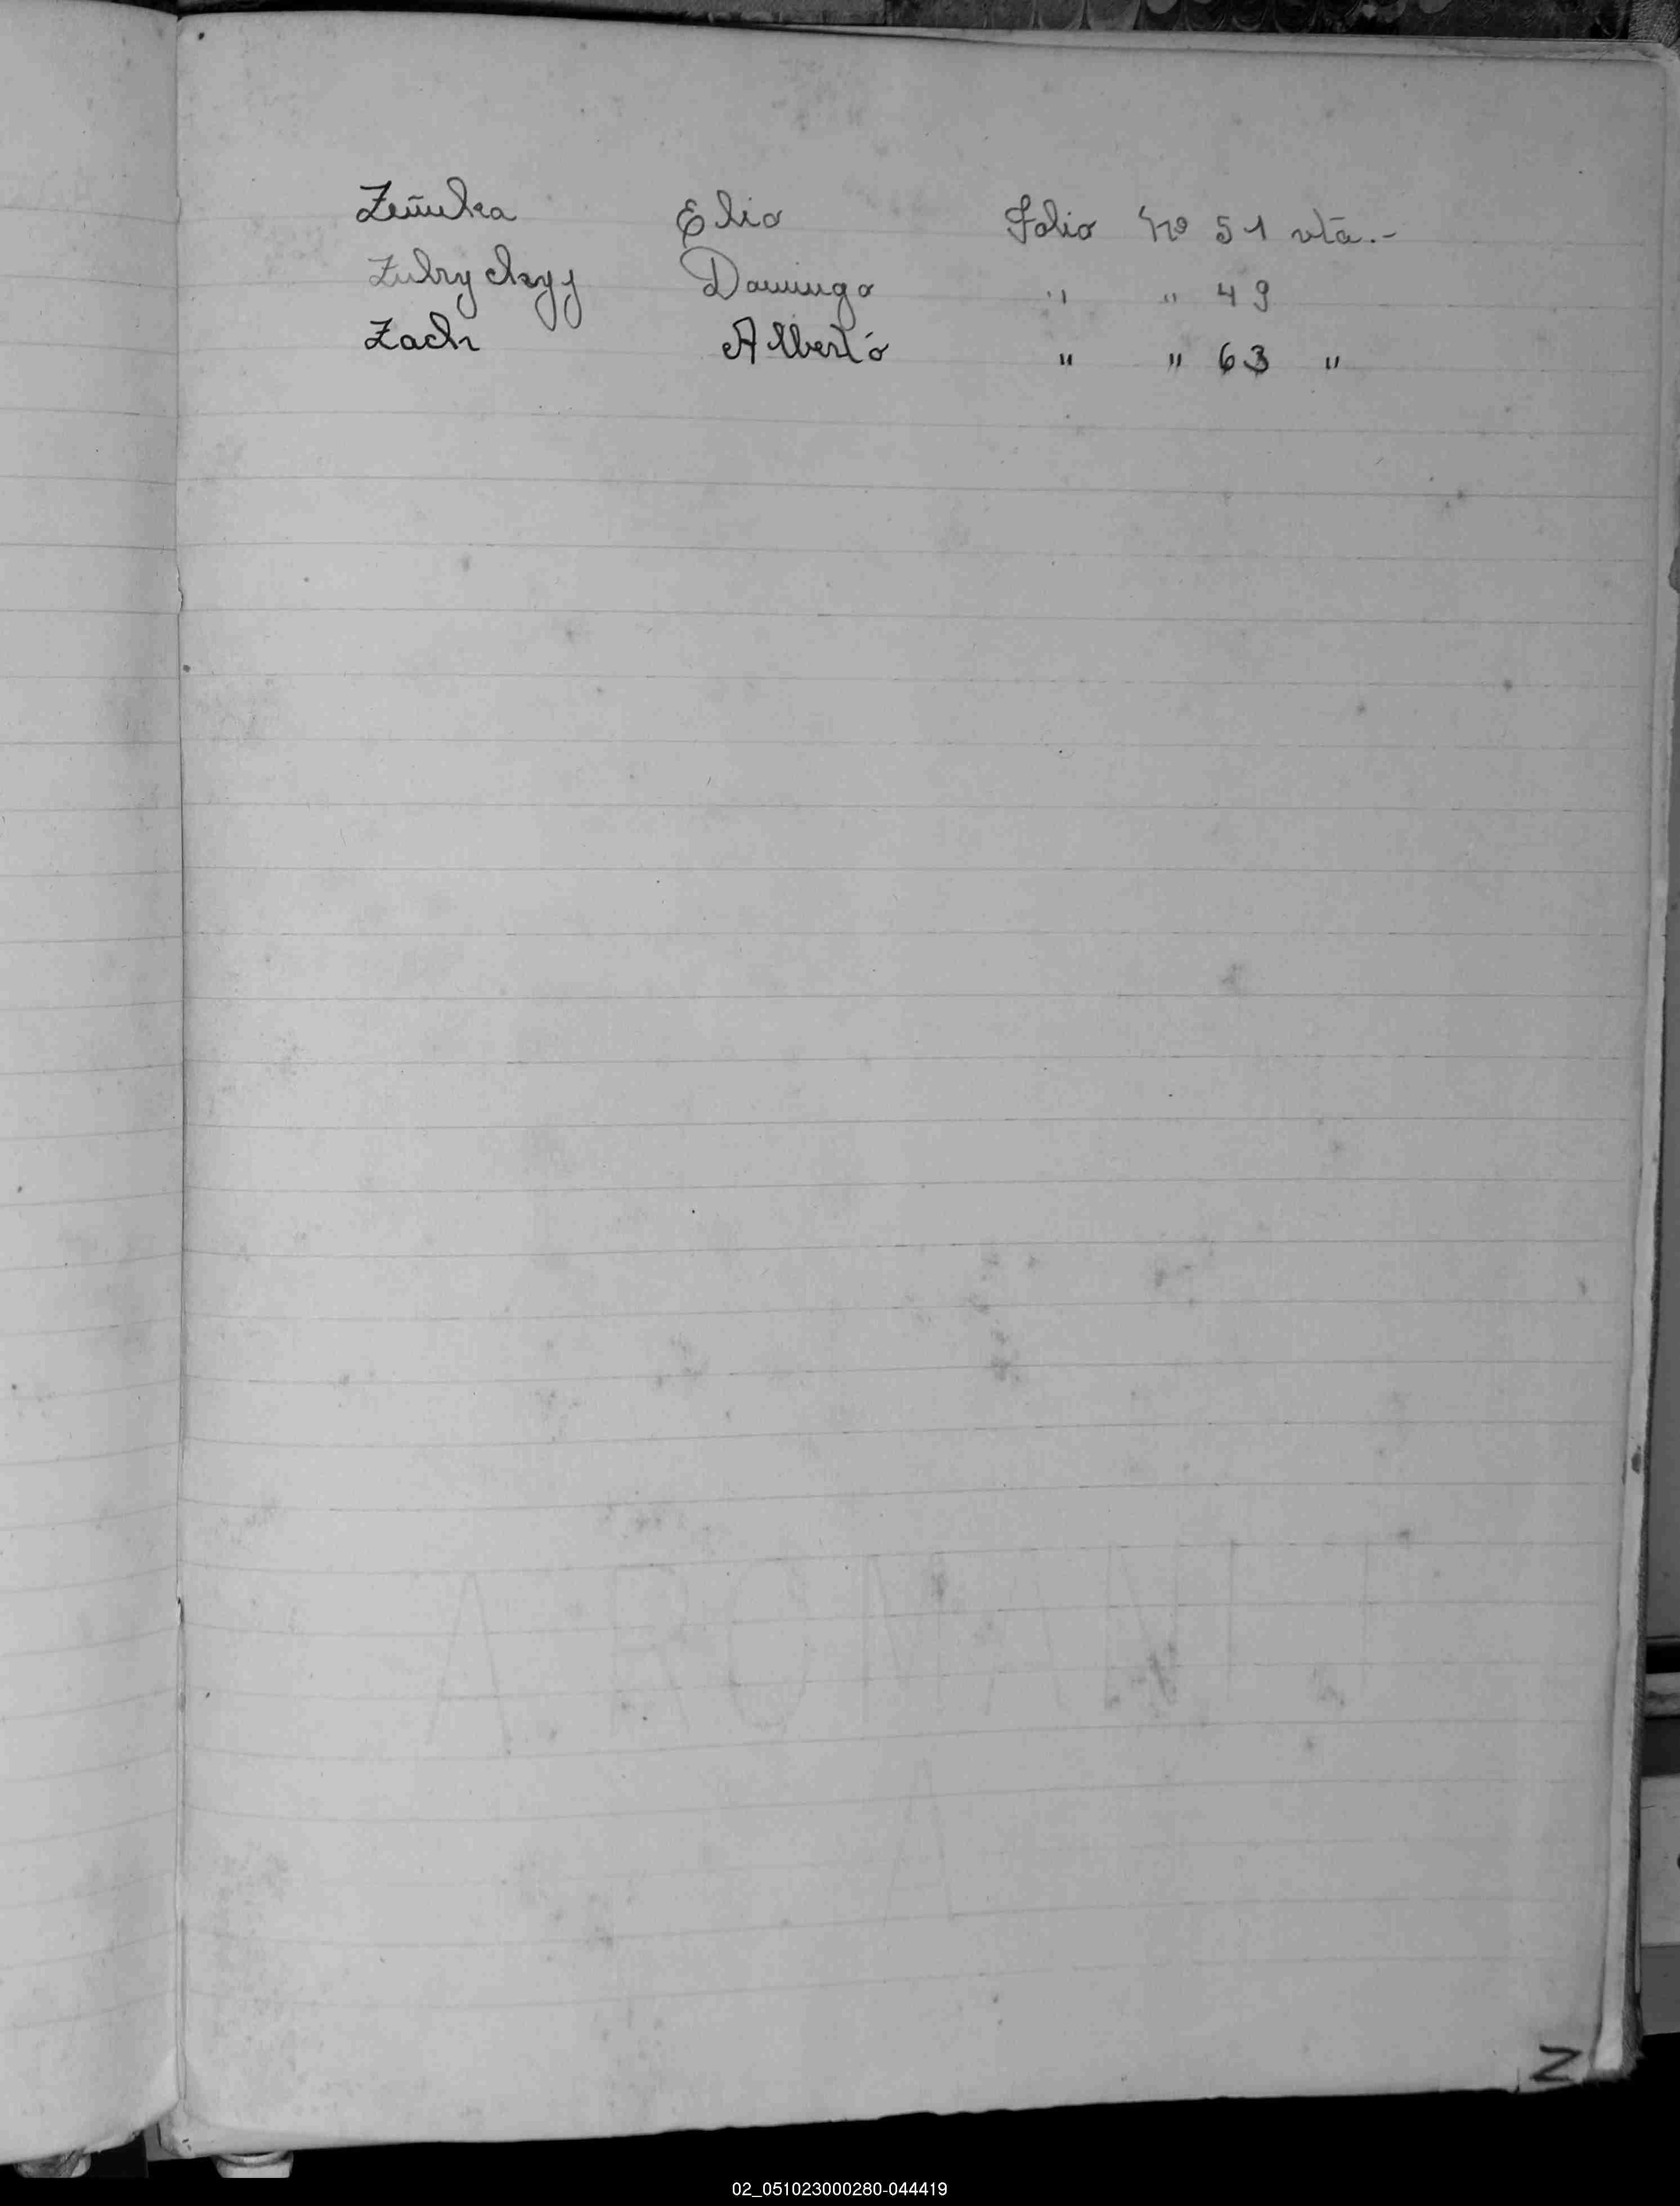 Zemuka Elio Folio Nº 51 vta.-
Zubryckyj Domingo " " 49
Zach Alberto " " 63 "
A ROMANI T
A
Z
02_051023000280-044419